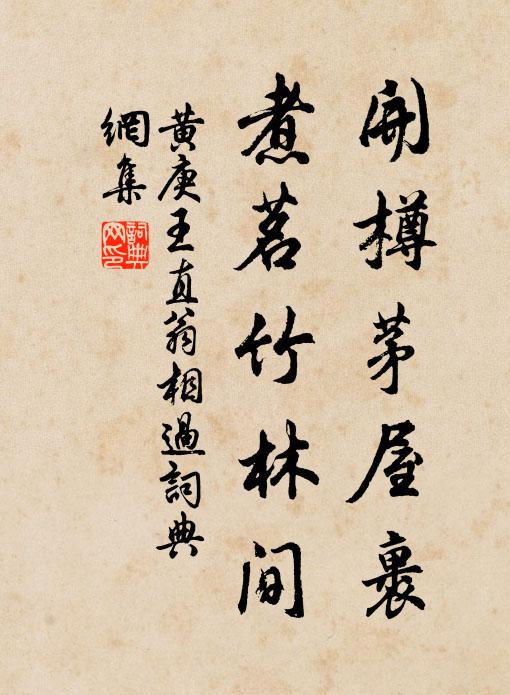 開樽茅屋裏
煮茗竹林間
黄庚王直翁相過詞典
網集
詞典
网印